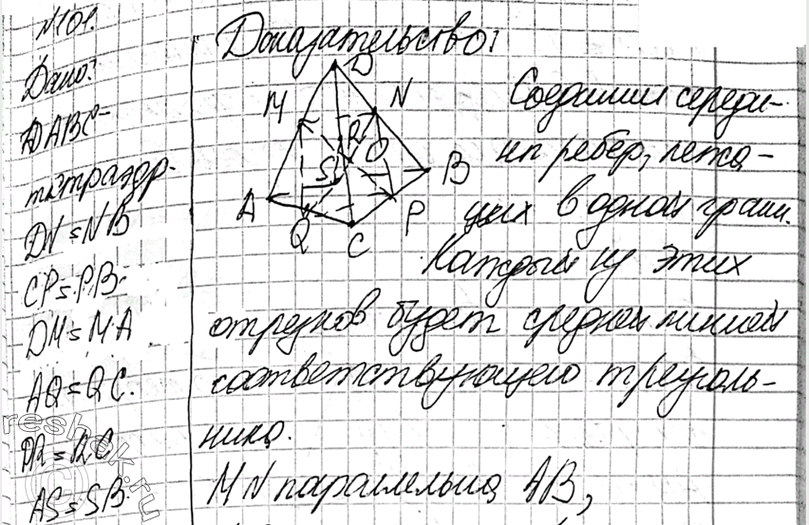 N101.
Дано:
DABC-
тетраэдр.
DN=NB
CP=PB.
DM=MA
AQ=QC.
DR=RC
AS=SB
Доказательство:
D
M
N
R
S
O
A
B
Q
P
C
Соединим середи-
ны ребер, лежа-
щих в одной грани.
Каждый из этих
отрезков будет средней линией
соответствующего треуголь-
ника.
MN параллельна AB,
reshak.ru